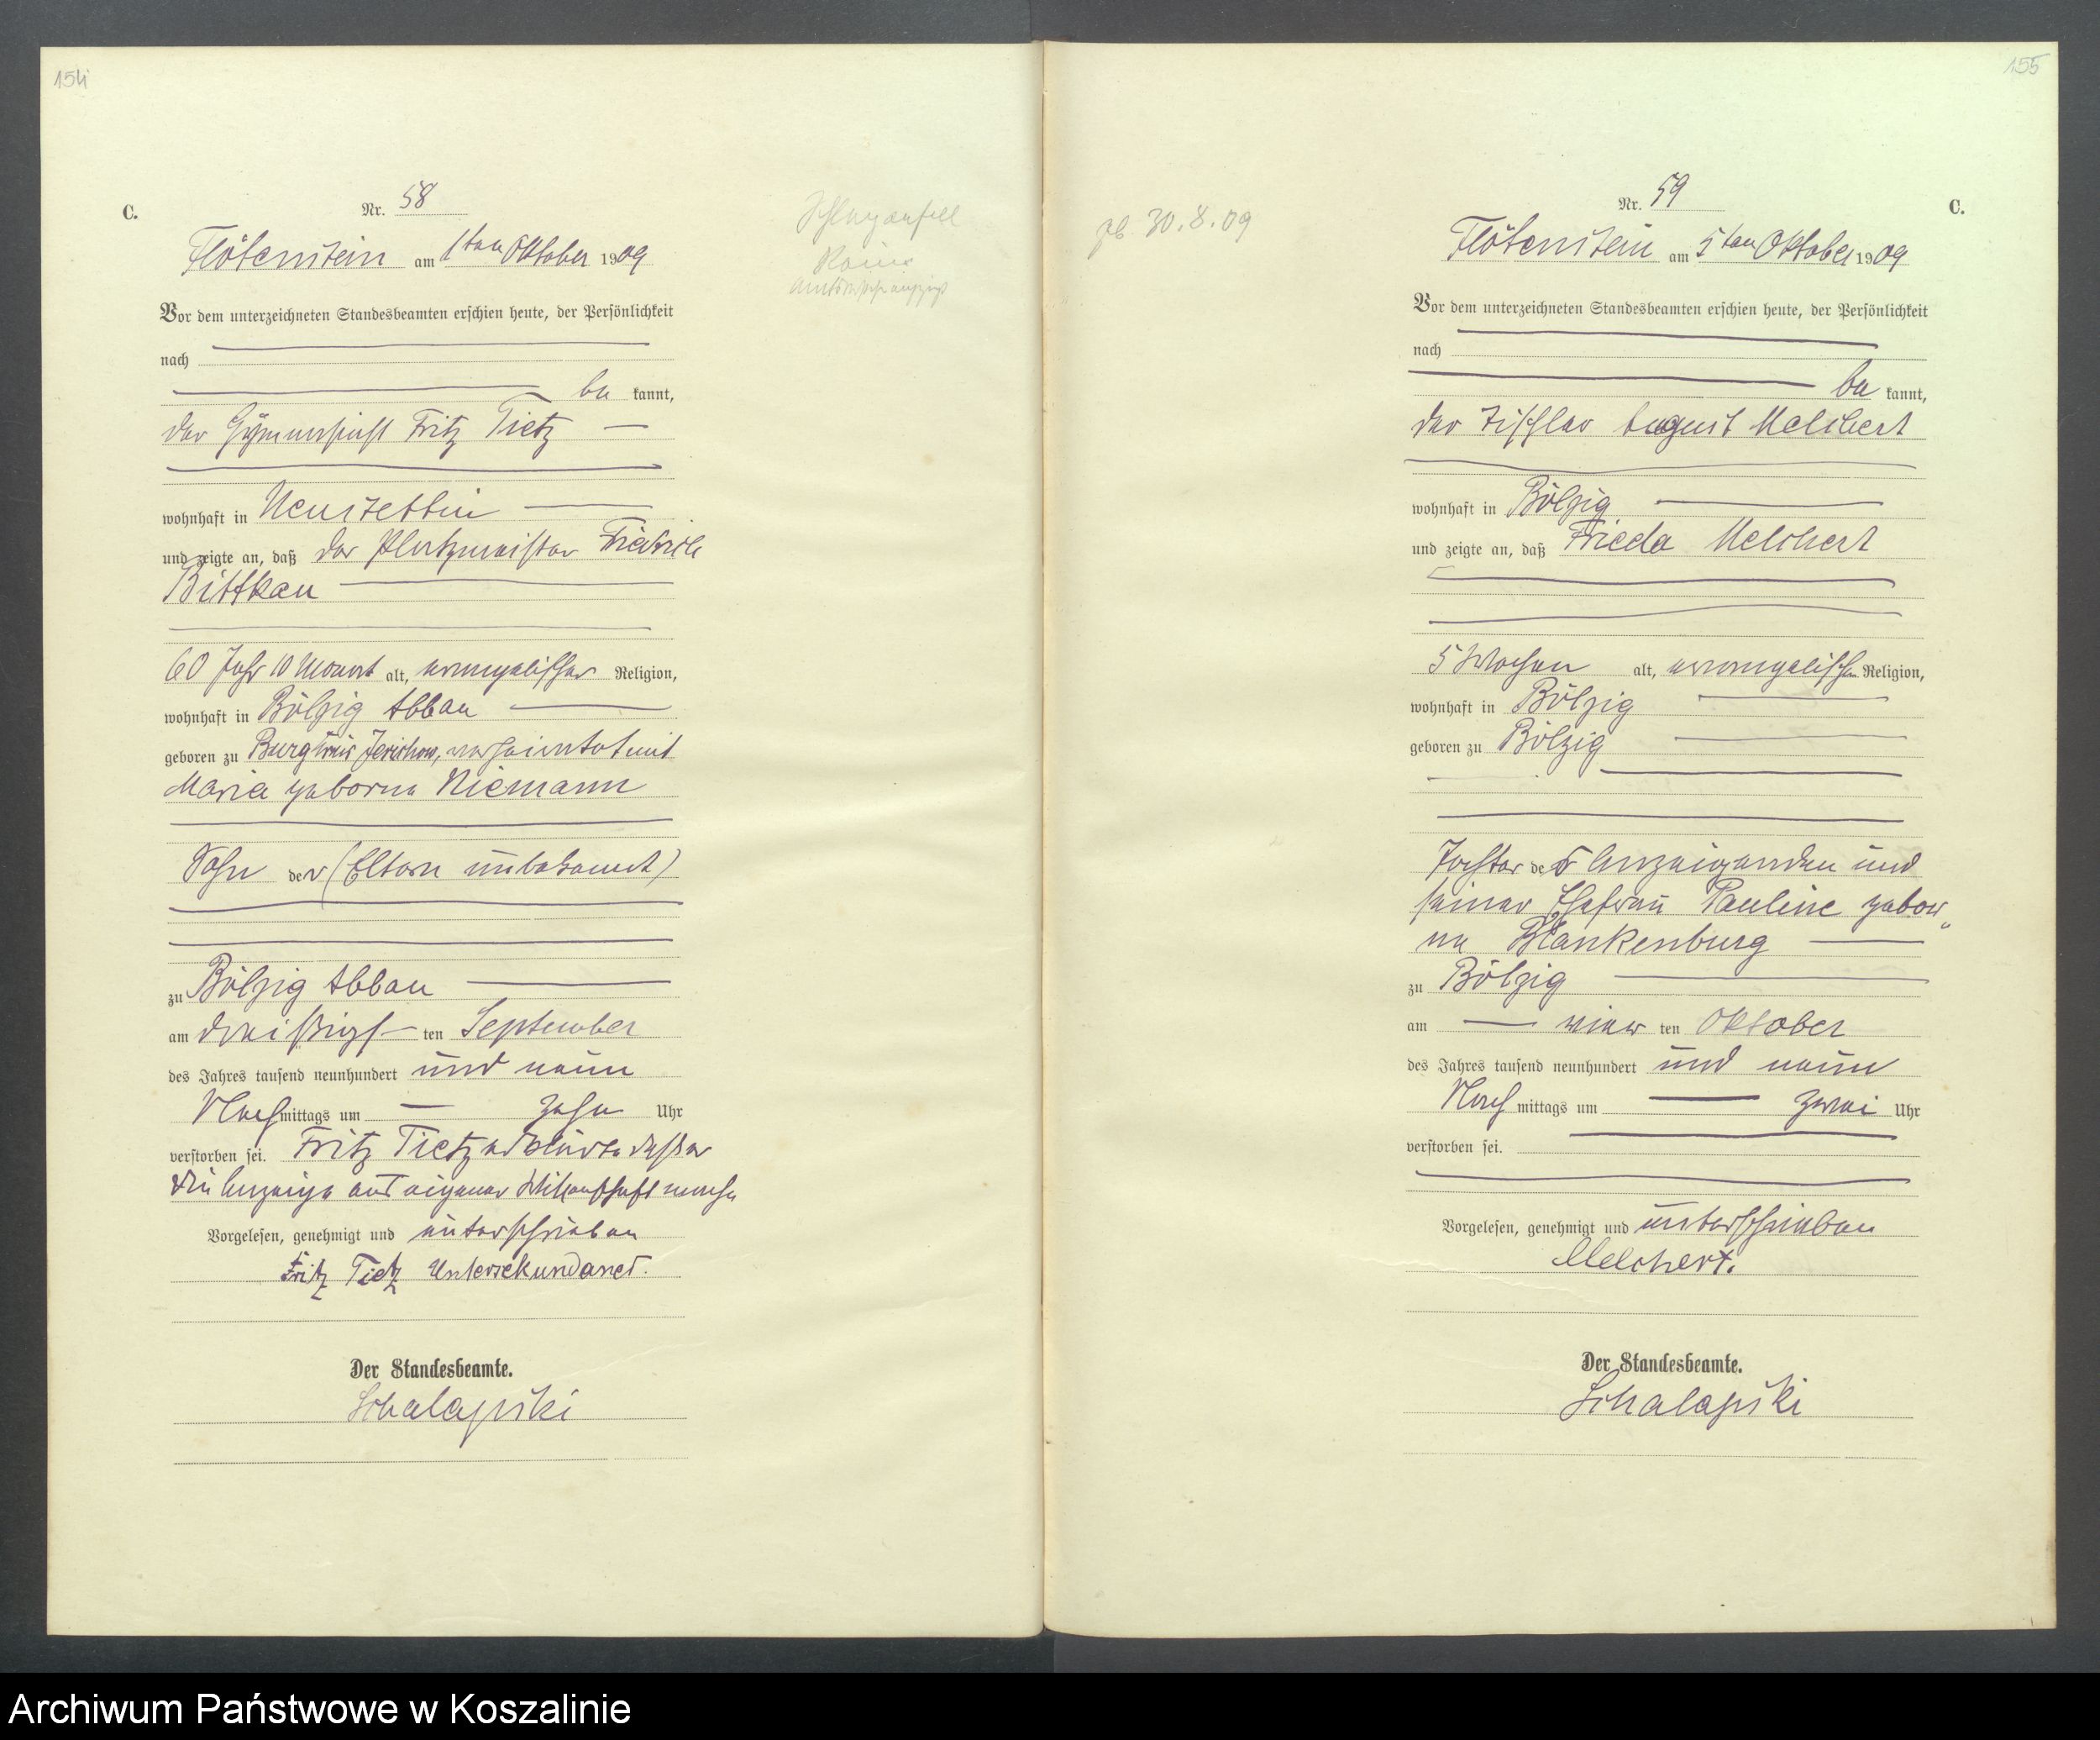 154
C.
Nr. 58
Flötenstein am 1ten Oktober 1909
Vor dem unterzeichneten Standesbeamten erschien heute, der Persönlichkeit
nach
be kannt,
der Gymnasiast Fritz Tietz
wohnhaft in Neustettin
und zeigte an, daß der Platzmeister Friedrich
Bittkau
60 Jahr 10 Monat alt, evangelischer Religion,
wohnhaft in Bölzig Abbau
geboren zu Burg Kreis Jerichow, verheiratet mit
Maria geborne Niemann
Sohn der (Eltern unbekannt)
zu Bölzig Abbau
am dreißigs ten September
des Jahres tausend neunhundert und neun
Nach mittags um zehn Uhr
verstorben sei. Fritz Tietz erklärte daß er
die Anzeige aus eigener Wissenschaft mache
Vorgelesen, genehmigt und unterschrieben
Fritz Tietz Untersekundaner.
Der Standesbeamte.
Schalapski
Schlaganfall
155
C.
gb. 30.8.09
Nr. 59
Flötenstein am 5ten Oktober 1909
Vor dem unterzeichneten Standesbeamten erschien heute, der Persönlichkeit
nach
be kannt,
der Tischler August Melchert
wohnhaft in Bölzig
und zeigte an, daß Frieda Melchert
5 Wochen alt, evangelischen Religion,
wohnhaft in Bölzig
geboren zu Bölzig
Tochter des Anzeigenden und
seiner Ehefrau Pauline gebor„
ne Blankenburg
zu Bölzig
am vier ten Oktober
des Jahres tausend neunhundert und neun
Nach mittags um zwei Uhr
verstorben sei.
Vorgelesen, genehmigt und unterschrieben
Melchert.
Der Standesbeamte.
Schalapski
Archiwum Państwowe w Koszalinie